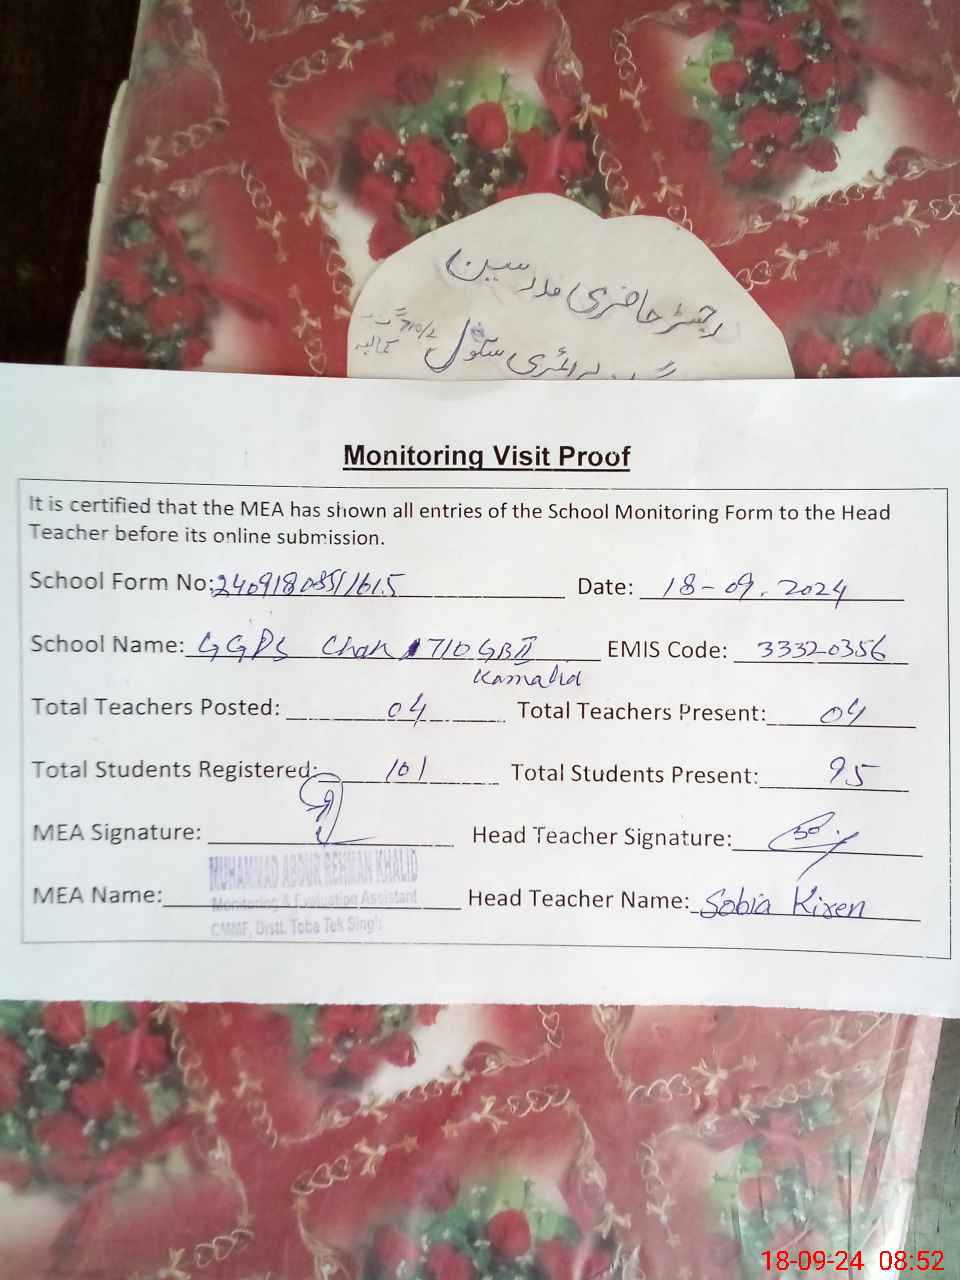 رجسٹر حاضری مدرسین
گورنمنٹ پرائمری سکول 710/2 گ ب
کمالیہ
Monitoring Visit Proof
It is certified that the MEA has shown all entries of the School Monitoring Form to the Head
Teacher before its online submission.
School Form No: Date: 18-09.2024
School Name: GGPS Chak 710 GB II EMIS Code: 33320356
Kamalia
Total Teachers Posted: 04 Total Teachers Present: 04
Total Students Registered: 101 Total Students Present: 95
MEA Signature: Head Teacher Signature:
MUHAMMAD ABDUR REHMAN KHALID
MEA Name: Monitoring & Evaluation Assistant Head Teacher Name: Sobia Kiren
CMMF, Distt. Toba Tek Singh
18-09-24 08:52